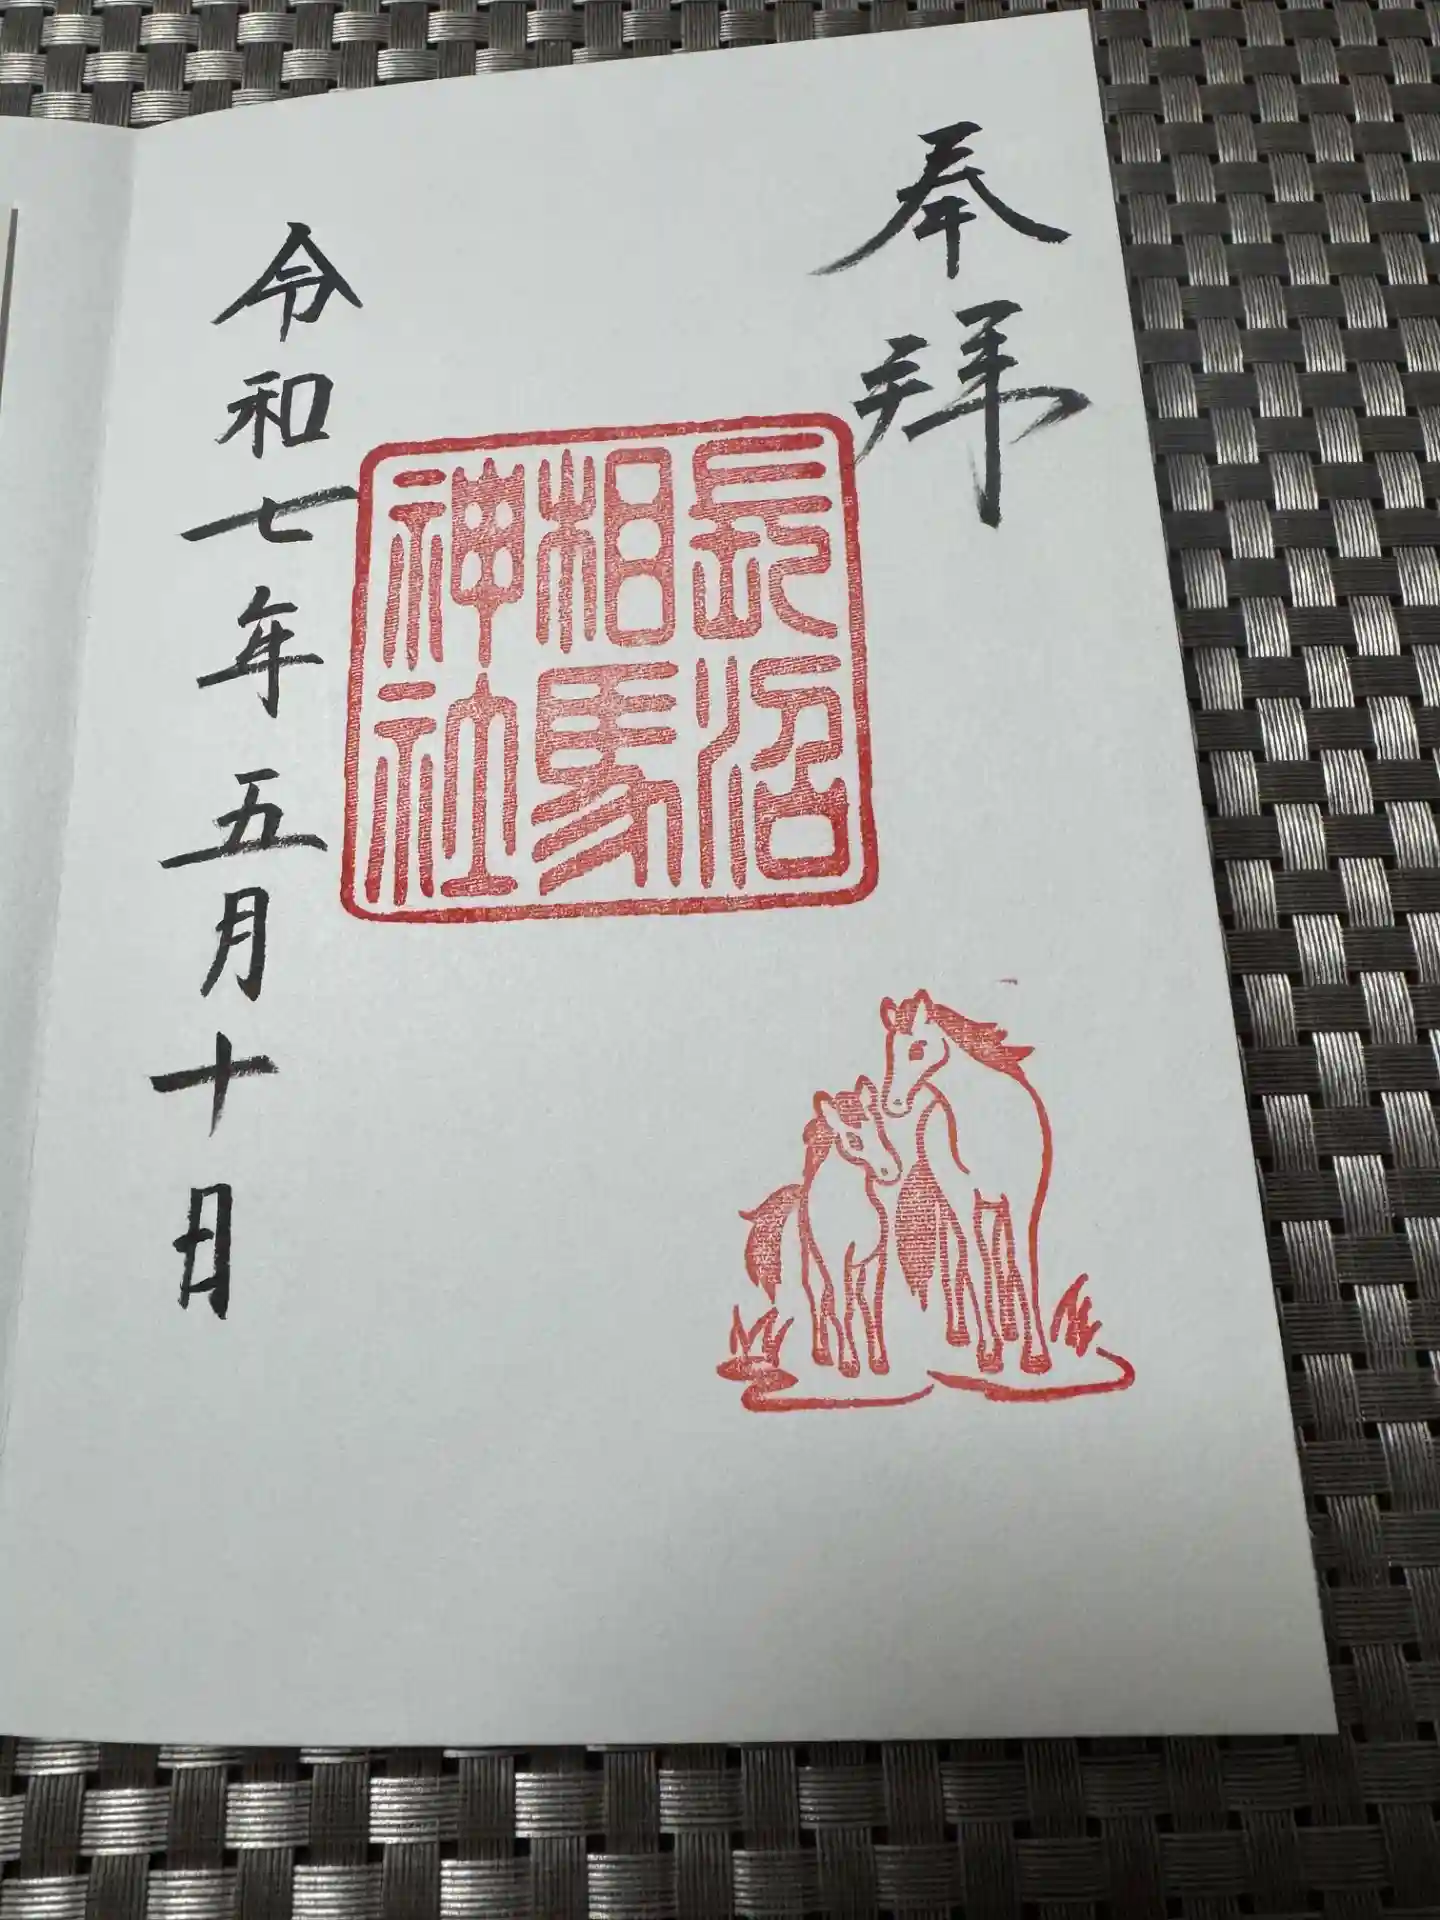 奉拝
長沼
相馬
神社
令和七年五月十日